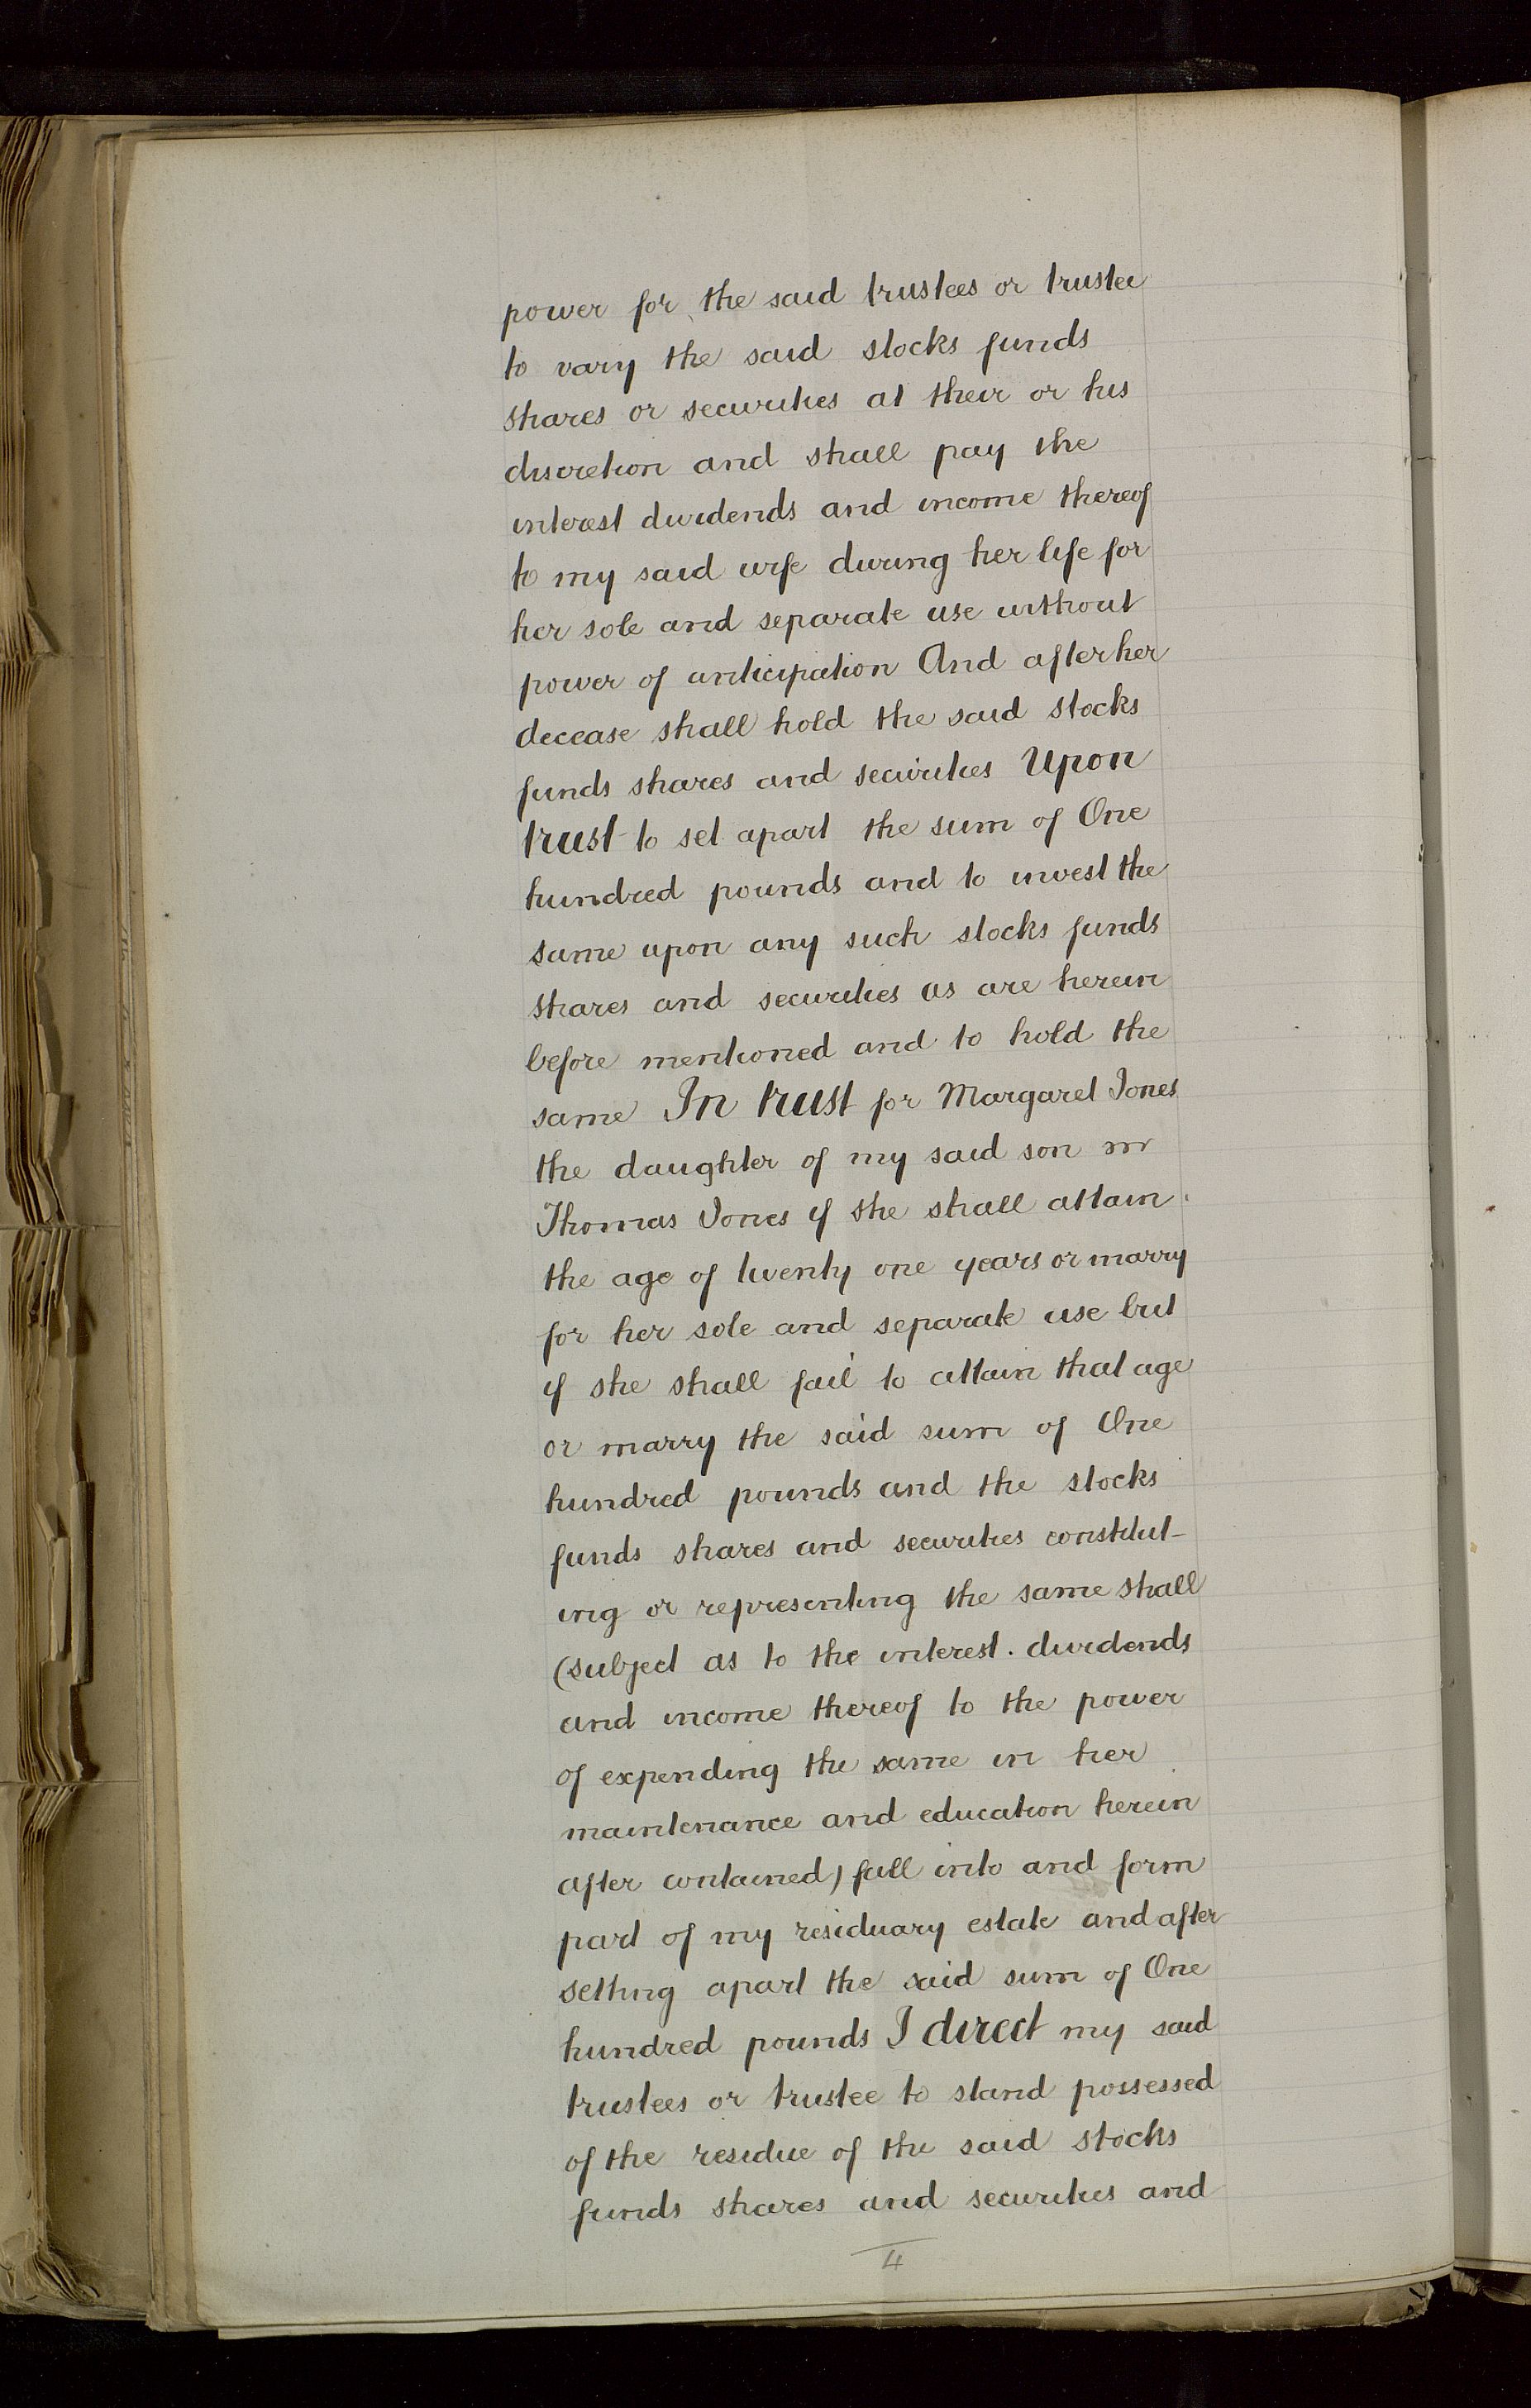 power for the said trustees or trustee
to vary the said stocks funds
shares or securities at their or his
discretion and shall pay the
interest dividends and income thereof
to my said wife during her life for
her sole and separate use without
power of anticipation And after her
decease shall hold the said stocks
funds shares and securities Upon
trust to set apart the sum of One
hundred pounds and to invest the
same upon any such stocks funds
shares and securities as are herein
before mentioned and to hold the
same In trust for Margaret Jones
the daughter of my said son
Thomas Jones if she shall attain
the age of twenty one years or marry
for her sole and separate use but
if she shall fail to attain that age
or marry the said sum of One
hundred pounds and the stocks
funds shares and securities constitut-
ing or representing the same shall
(subject as to the interest . dividends
and income thereof to the power
of expending the same in her
maintenance and education herein
after contained) fall into and form
part of my residuary estate and after
setting apart the said sum of One
hundred pounds I direct my said
trustees or trustee to stand possessed
of the residue of the said stocks
funds shares and securities and
4